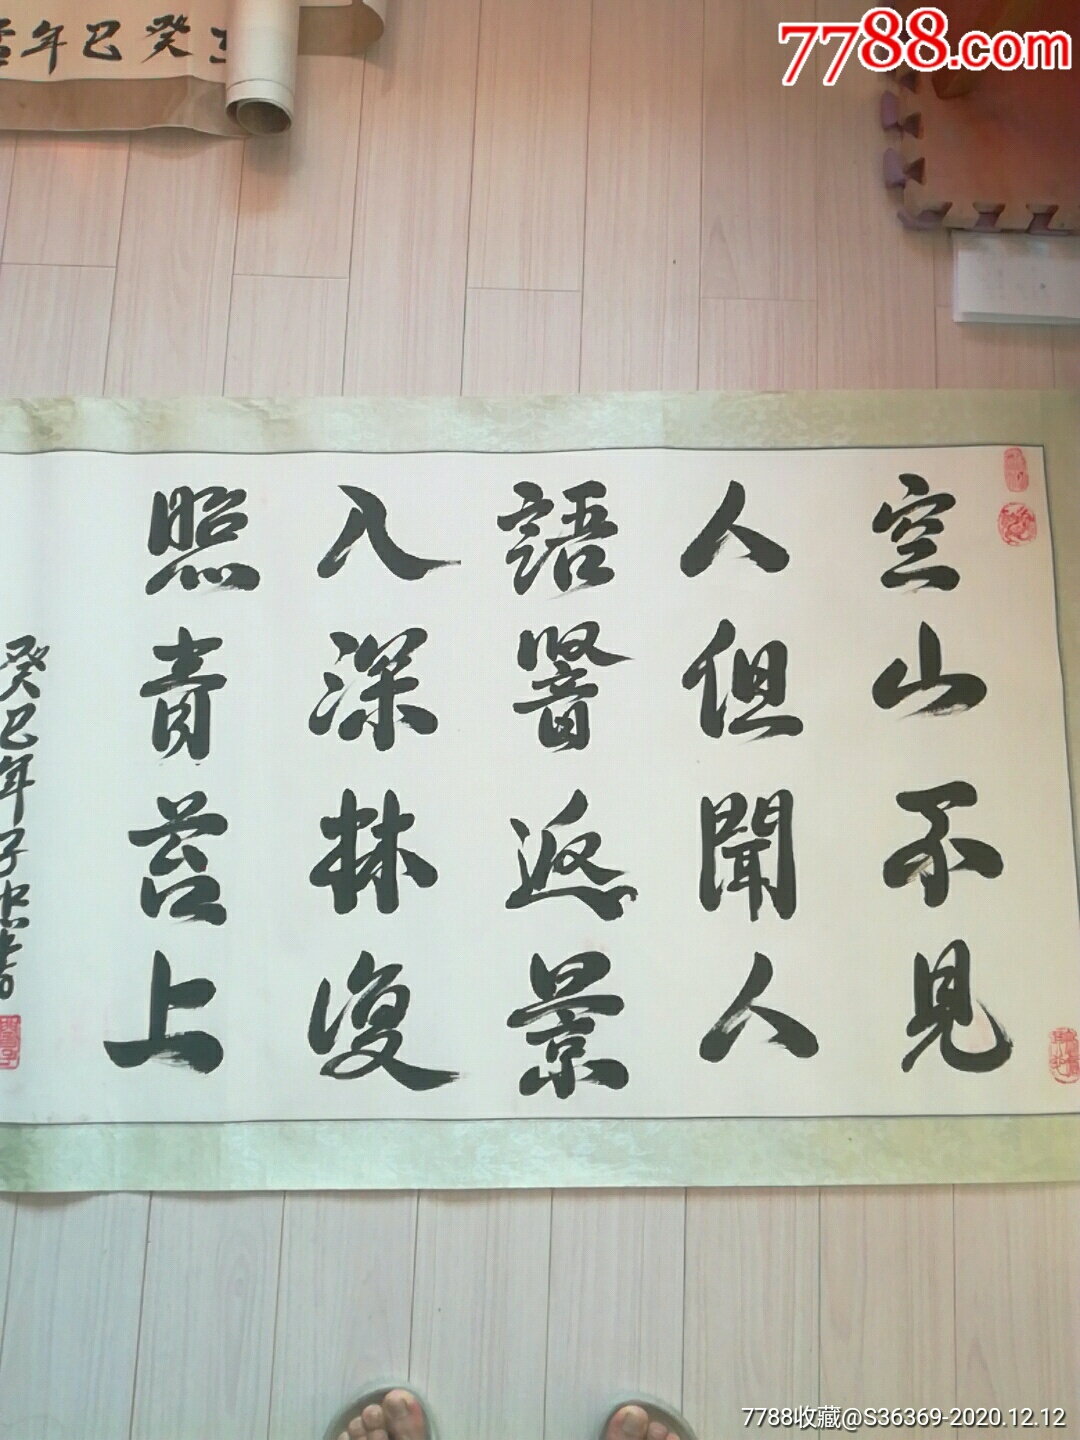 7788.com
癸巳年
空山不見
人但聞人
語響返景
入深林復
照青苔上
癸巳年子忠書
7788收藏@S36369-2020.12.12